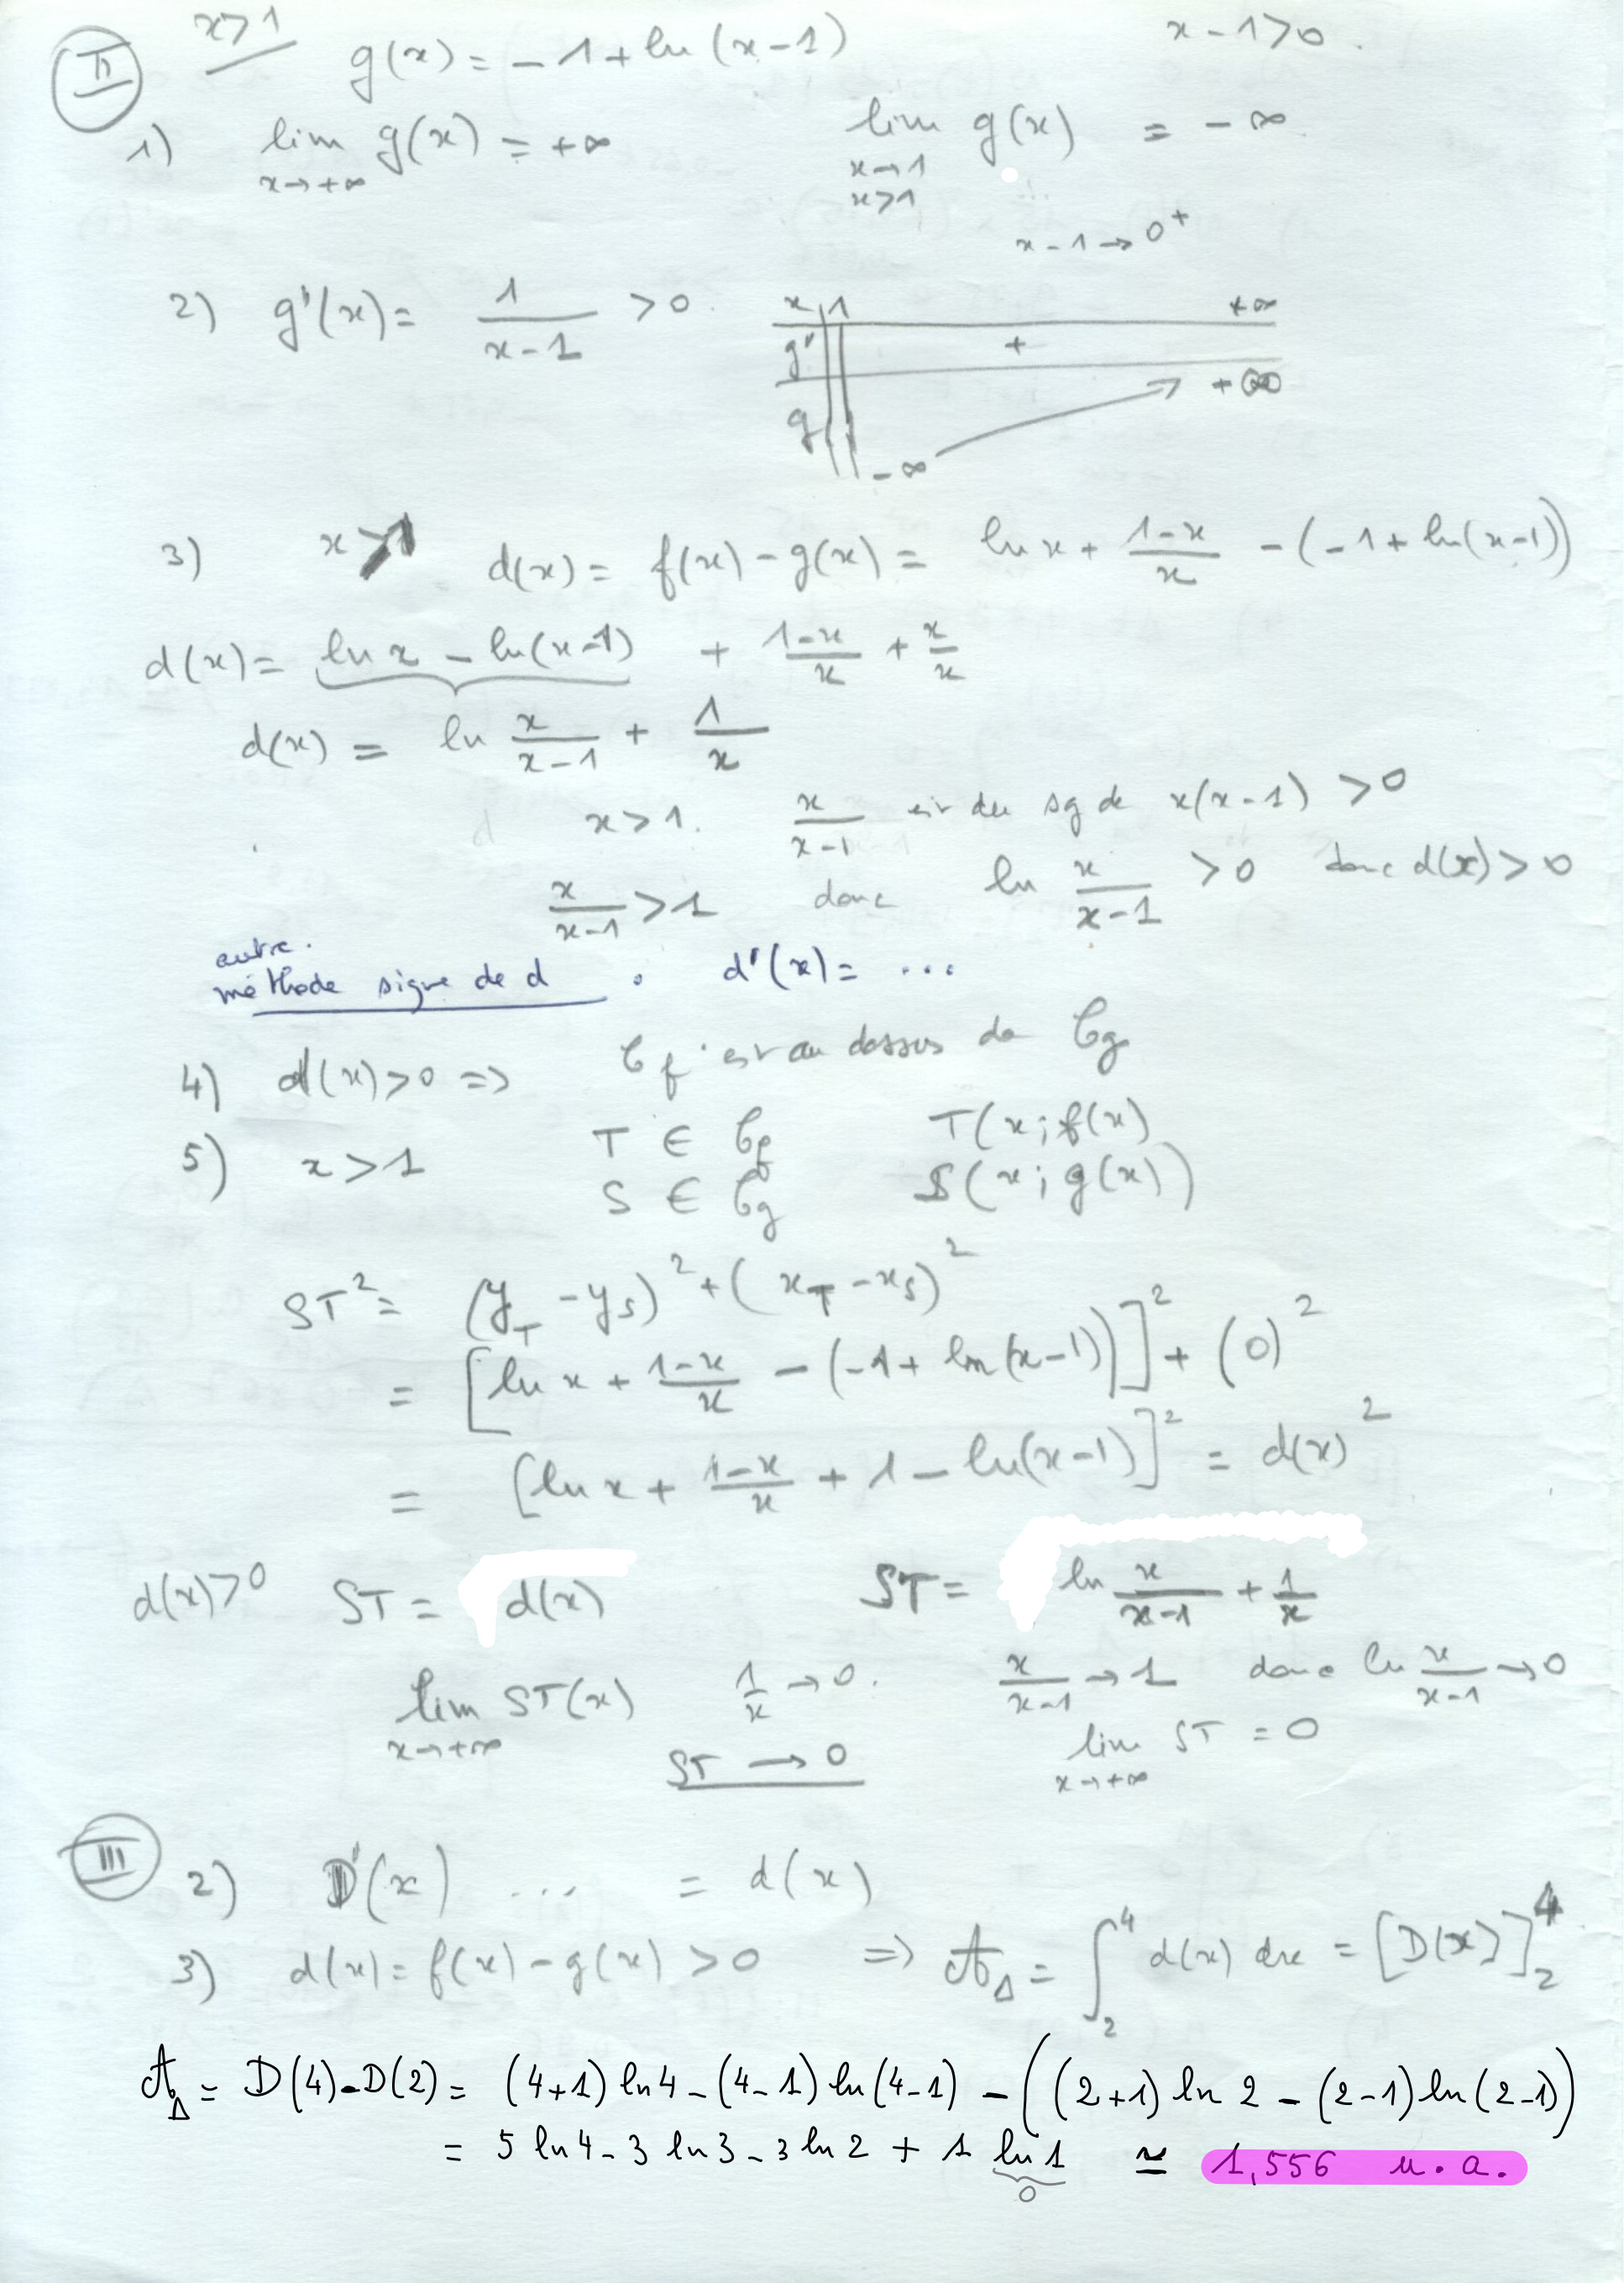 II x>1 g(x) = -1 + ln(x-1) x-1>0.
1) lim x→+∞ g(x) = +∞ lim x→1 x>1 g(x) = -∞
x-1→0⁺
2) g'(x) = 1/(x-1) > 0. x 1 +∞
g' +
g -∞ +∞
3) x>1 d(x) = f(x) - g(x) = ln x + (1-x)/x - (-1 + ln(x-1))
d(x) = ln x - ln(x-1) + (1-x)/x + x/x
d(x) = ln x/(x-1) + 1/x
x>1. x/(x-1) est du sg de x(x-1) > 0
x/(x-1) > 1 donc ln x/(x-1) > 0 donc d(x) > 0
autre.
méthode signe de d . d'(x) = ...
4) d(x)>0 => Cf est au dessus de Cg
5) x>1 T ∈ Cf T(x ; f(x)
S ∈ Cg S(x ; g(x))
ST² = (y_T - y_S)² + (x_T - x_S)²
= [ln x + (1-x)/x - (-1 + ln(x-1))]² + (0)²
= [ln x + (1-x)/x + 1 - ln(x-1)]² = d(x)²
d(x)>0 ST = d(x) ST = ln x/(x-1) + 1/x
lim x→+∞ ST(x) 1/x → 0. x/(x-1) → 1 donc ln x/(x-1) → 0
ST → 0 lim x→+∞ ST = 0
III 2) D'(x) ... = d(x)
3) d(x) = f(x) - g(x) > 0 => A_Δ = ∫₂⁴ d(x) dx = [D(x)]₂⁴
A_Δ = D(4) - D(2) = (4+1) ln 4 - (4-1) ln(4-1) - ((2+1) ln 2 - (2-1) ln(2-1))
= 5 ln 4 - 3 ln 3 - 3 ln 2 + 1 ln 1 ≃ 1,556 u.a.
0